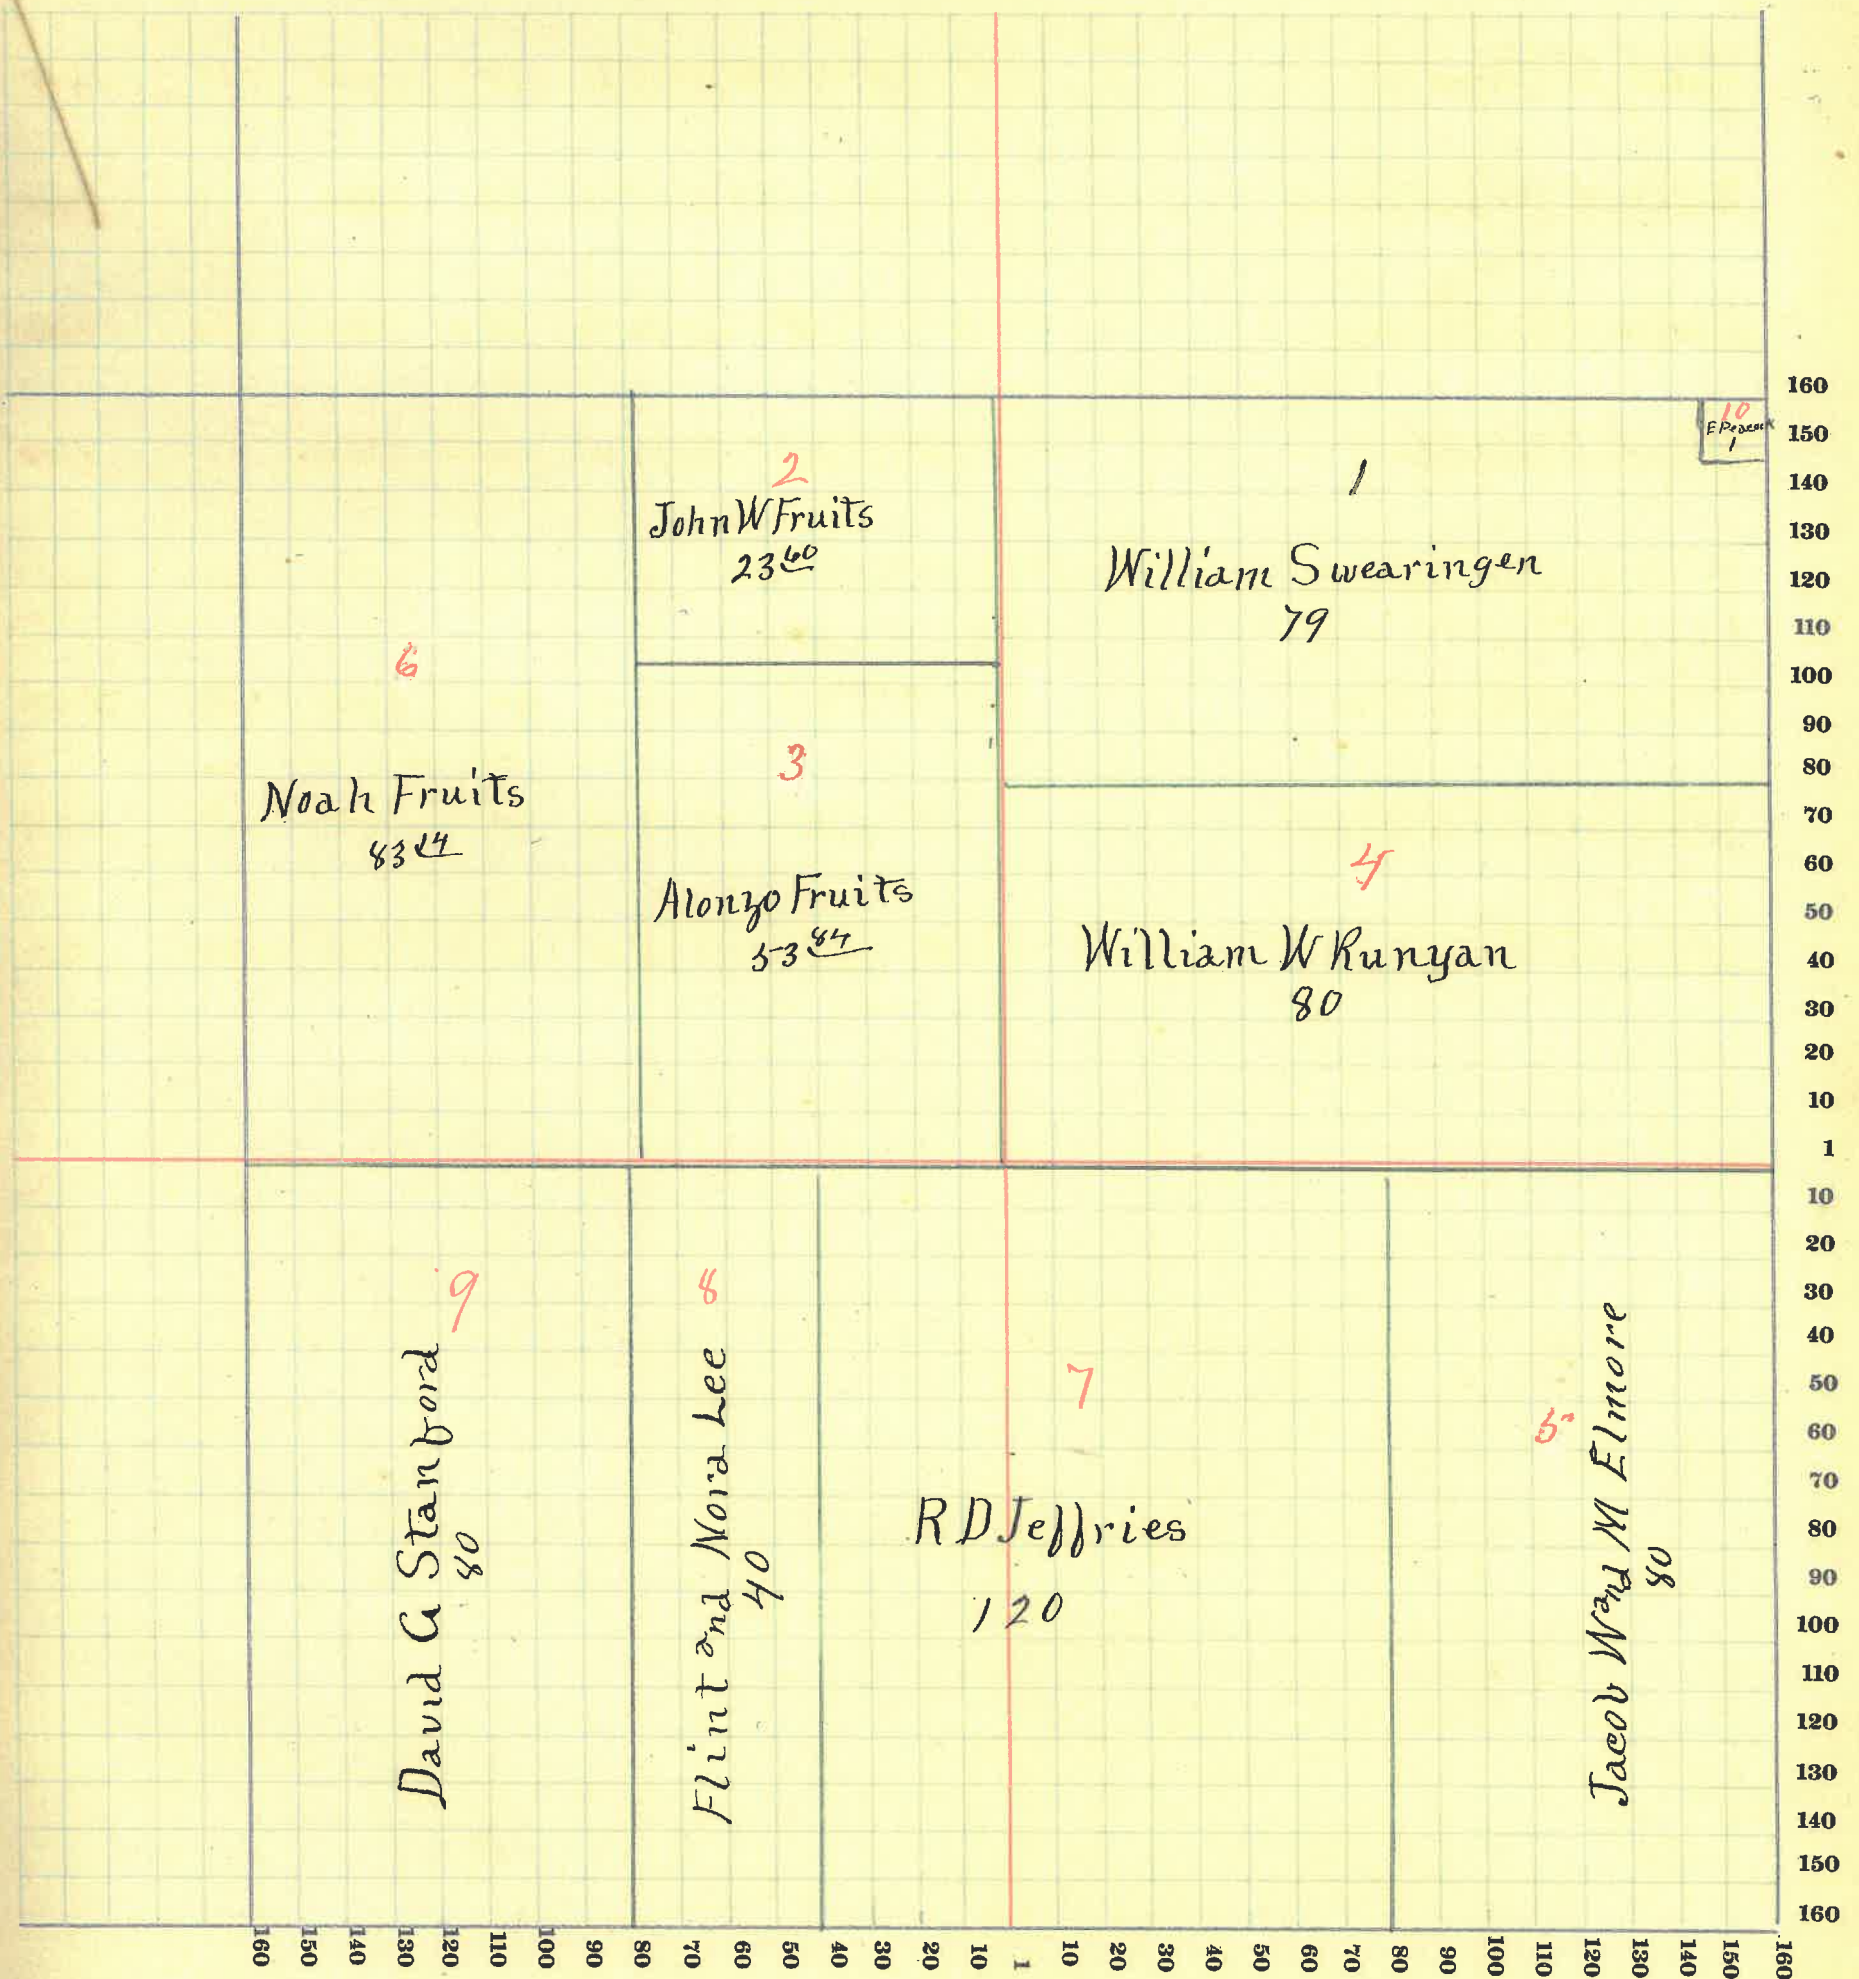 160
10
E Peacock
1
150
140
130
120
110
100
90
80
70
60
50
40
30
20
10
1
10
20
30
40
50
60
70
80
90
100
110
120
130
140
150
160
2
John W Fruits
23 60
1
William Swearingen
79
6
Noah Fruits
83 14
3
Alonzo Fruits
53 84
4
William W Runyan
80
9
David A Stanford
80
8
Flint and Nora Lee
40
7
R D Jeffries
120
5
Jacob W and M Elmore
80
160 150 140 130 120 110 100 90 80 70 60 50 40 30 20 10 1 10 20 30 40 50 60 70 80 90 100 110 120 130 140 150 160